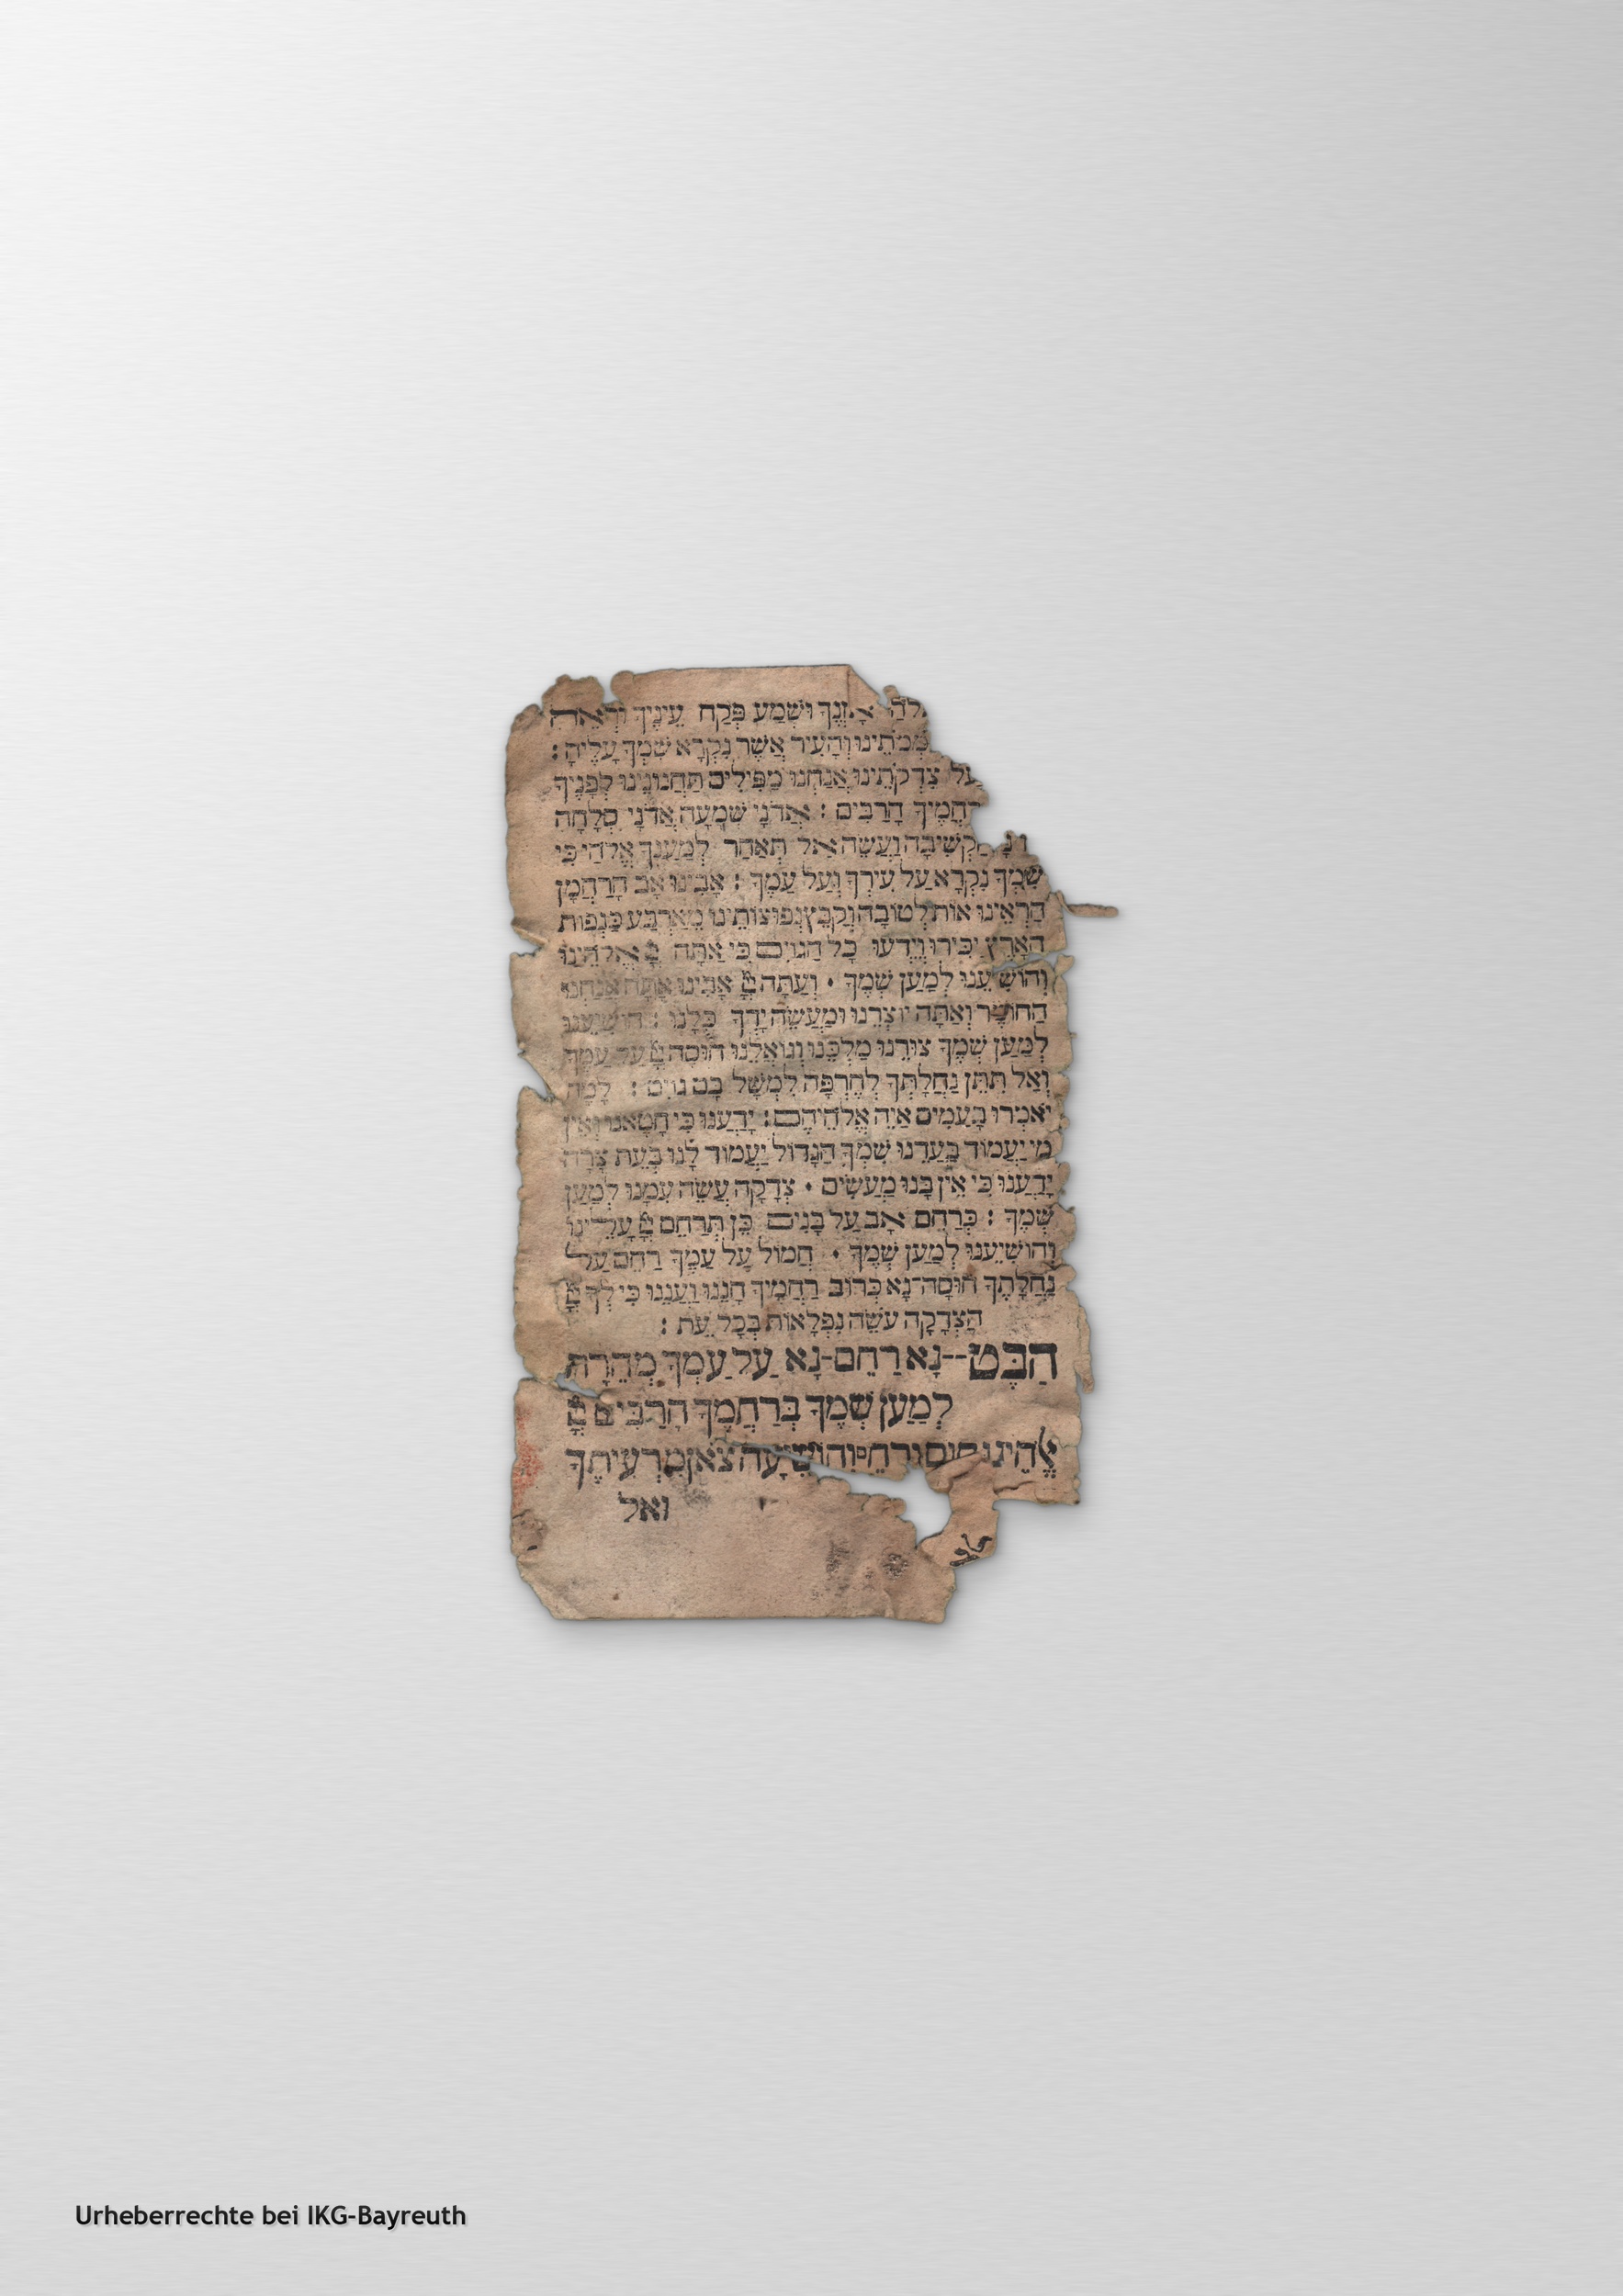 אָזְנְךָ וּשְׁמָע פְּקַח עֵינֶיךָ וּרְאֵה
וְהָעִיר אֲשֶׁר נִקְרָא שִׁמְךָ עָלֶיהָ :
עַל צִדְקֹתֵינוּ אֲנַחְנוּ מַפִּילִים תַּחֲנוּנֵינוּ לְפָנֶיךָ
רַחֲמֶיךָ הָרַבִּים : אֲדֹנָי שְׁמָעָה אֲדֹנָי סְלָחָה
הַקְשִׁיבָה וַעֲשֵׂה אַל תְּאַחַר לְמַעַנְךָ אֱלֹהַי כִּי
שִׁמְךָ נִקְרָא עַל עִירְךָ וְעַל עַמֶּךָ : אָבִינוּ אָב הָרַחֲמָן
הַרְאֵינוּ אוֹת לְטוֹבָה וְקַבֵּץ נְפוּצוֹתֵינוּ מֵאַרְבַּע כַּנְפוֹת
הָאָרֶץ יַכִּירוּ וְיֵדְעוּ כָּל הַגּוֹיִם כִּי אַתָּה יְיָ אֱלֹהֵינוּ
וְהוֹשִׁיעֵנוּ לְמַעַן שְׁמֶךָ · וְעַתָּה יְיָ אָבִינוּ אַתָּה אֲנַחְנוּ
הַחוֹמֶר וְאַתָּה יוֹצְרֵנוּ וּמַעֲשֵׂה יָדְךָ כֻּלָּנוּ : הוֹשִׁיעֵנוּ
לְמַעַן שְׁמֶךָ צוּרֵנוּ מַלְכֵּנוּ וְגוֹאֲלֵנוּ חוּסָה יְיָ עַל עַמֶּךָ
וְאַל תִּתֵּן נַחֲלָתְךָ לְחֶרְפָּה לִמְשָׁל בָּם גּוֹיִם : לָמָּה
יֹאמְרוּ בָעַמִּים אַיֵּה אֱלֹהֵיהֶם : יָדַעְנוּ כִּי חָטָאנוּ וְאֵין
מִי יַעֲמוֹד בַּעֲדֵנוּ שִׁמְךָ הַגָּדוֹל יַעֲמוֹד לָנוּ בְּעֵת צָרָה
יָדַעְנוּ כִּי אֵין בָּנוּ מַעֲשִׂים · צְדָקָה עֲשֵׂה עִמָּנוּ לְמַעַן
שְׁמֶךָ : כְּרַחֵם אָב עַל בָּנִים כֵּן תְּרַחֵם יְיָ עָלֵינוּ
וְהוֹשִׁיעֵנוּ לְמַעַן שְׁמֶךָ · חֲמוֹל עַל עַמֶּךָ רַחֵם עַל
נַחֲלָתֶךָ חוּסָה־נָּא כְּרוֹב רַחֲמֶיךָ חָנֵּנוּ וַעֲנֵנוּ כִּי לְךָ יְיָ
הַצְּדָקָה עֹשֵׂה נִפְלָאוֹת בְּכָל עֵת :
הַבֶּט--נָא רַחֵם-נָא עַל עַמְּךָ מְהֵרָה
לְמַעַן שְׁמֶךָ בְּרַחֲמֶךָ הָרַבִּים יְיָ
אֱלֹהֵינוּ חוּס וְרַחֵם וְהוֹשִׁיעָה צֹאן מַרְעִיתֶךָ
ואל
Urheberrechte bei IKG-Bayreuth